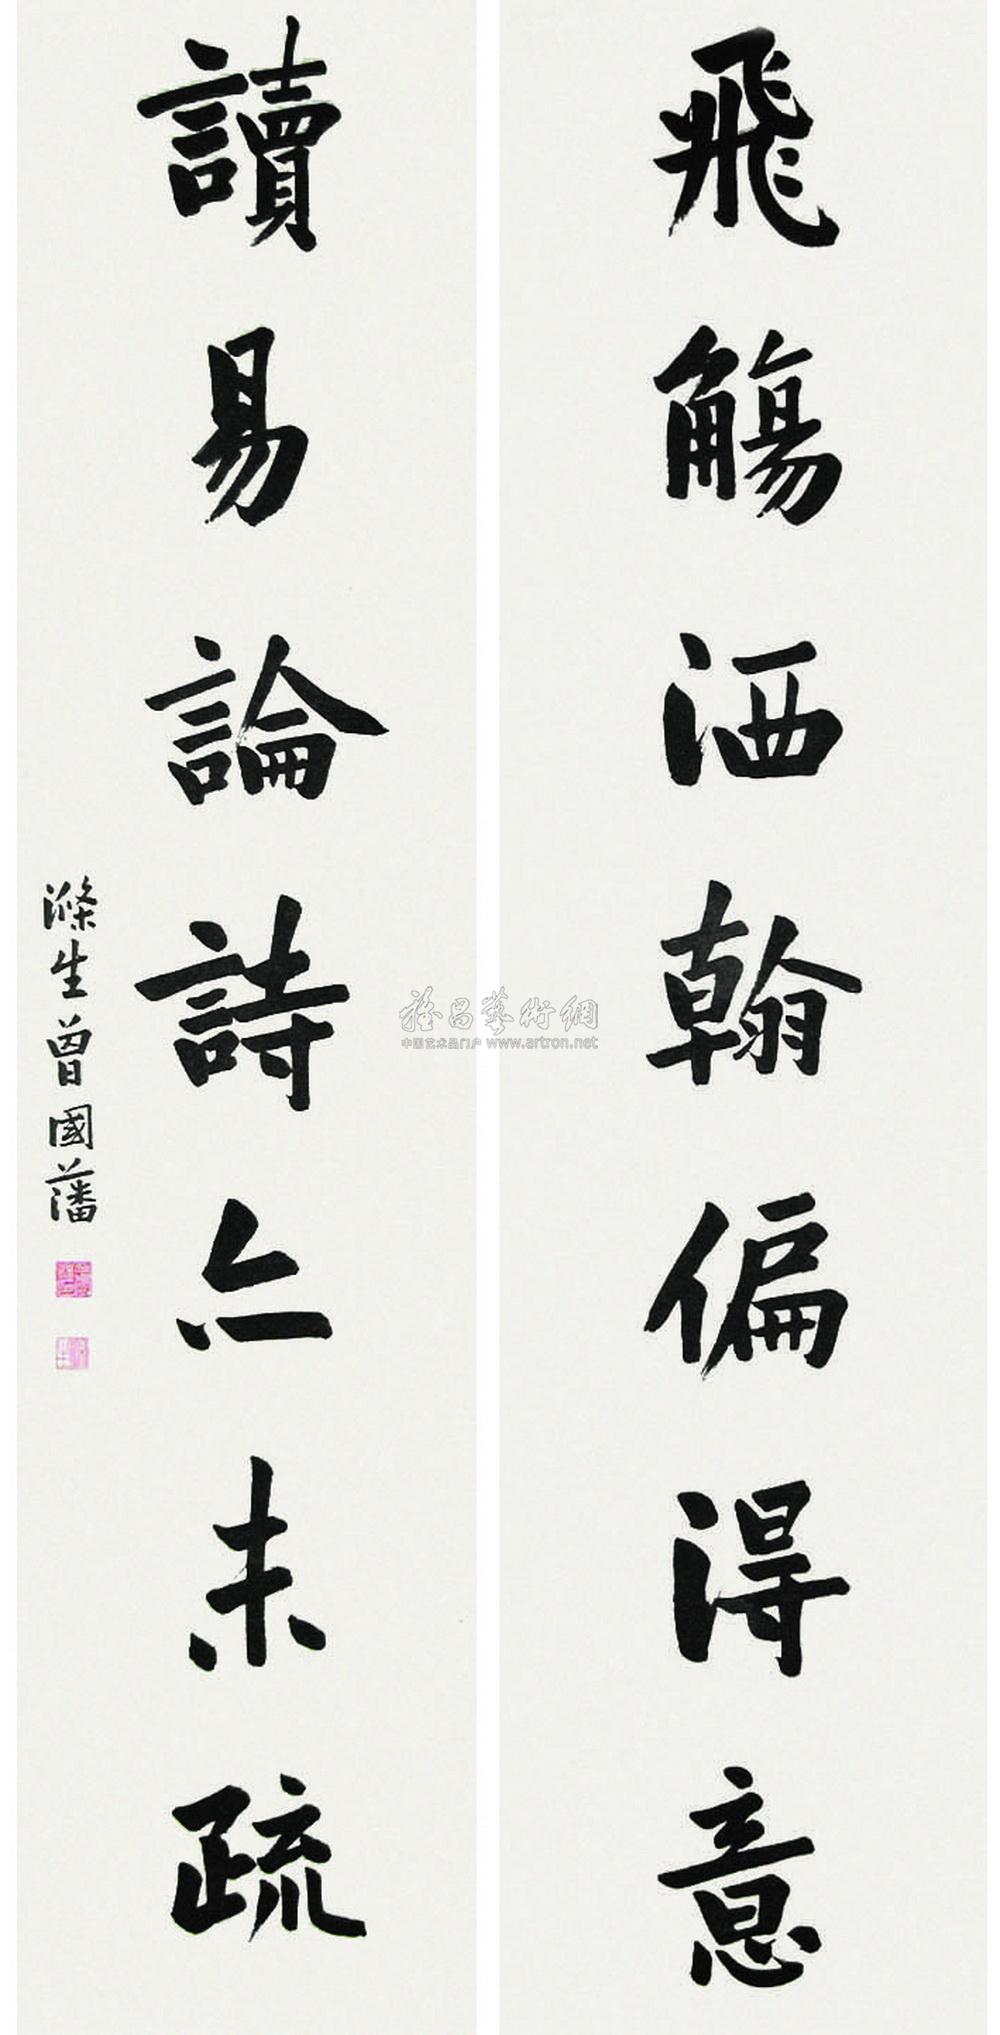 飛觴洒翰偏得意
讀易論詩亦未疏
滌生曾國藩
雅昌藝術網
中国艺术品门户 www.artron.net